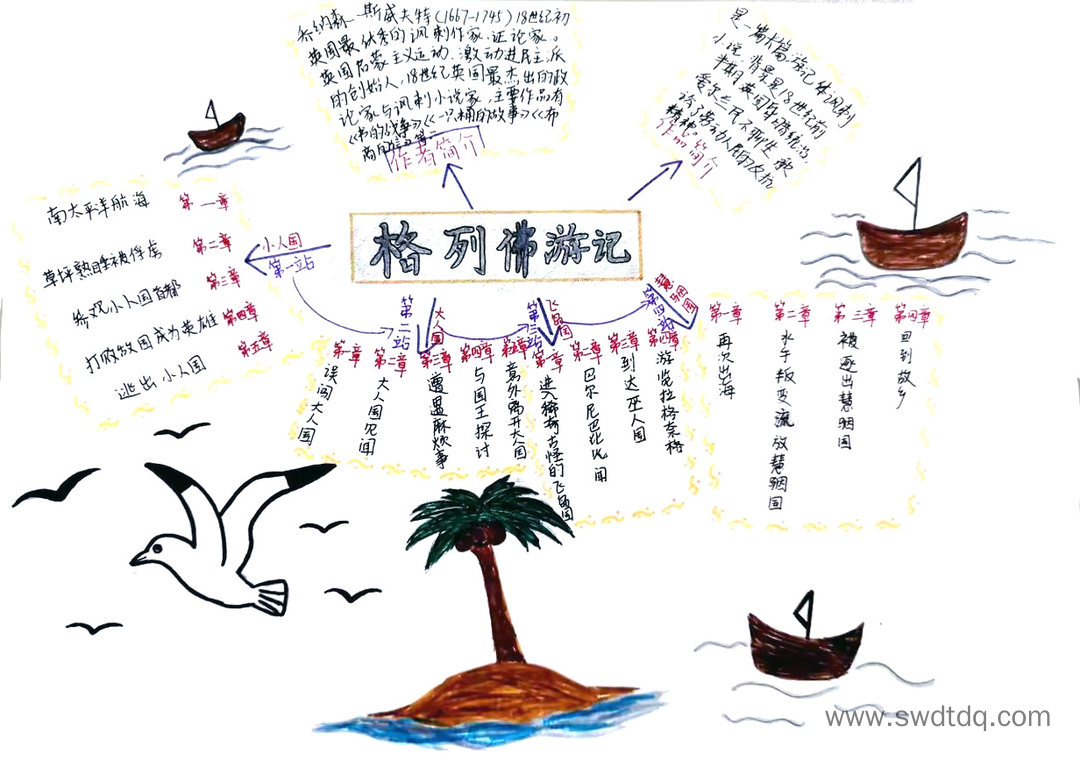 乔纳森·斯威夫特(1667-1745)18世纪初
英国最优秀的讽刺作家、证论家。
英国启蒙主义运动、激动进民主派
的创始人,18世纪英国最杰出的政
论家与讽刺小说家,主要作品有
《书的战事》《一只桶的故事》《布
商的
作者简介
是一篇长篇游记体讽刺
小说,背景是18世纪前
半期英国
爱尔兰民不聊生,歌
颂了劳动人民的反抗
精神。
作品简介
格列佛游记
小人国
第一站
南太平洋航海 第一章
草坪熟睡被俘虏 第二章
参观小人国首都 第三章
打败敌国成为英雄 第四章
逃出小人国 第五章
大人国
第二站
第一章 误闯大人国
第二章 大人国见闻
第三章 遭遇麻烦事
第四章 与国王探讨
第五章 意外离开大国
飞岛国
第三站
第一章 进入稀奇古怪的飞岛国
第二章 巴尔尼巴比见闻
第三章 到达巫人国
第四章 游览拉格奈格
慧骃国
第四站
第一章 再次出海
第二章 水手叛变流放慧骃国
第三章 被逐出慧骃国
第四章 回到故乡
www.swdtdq.com